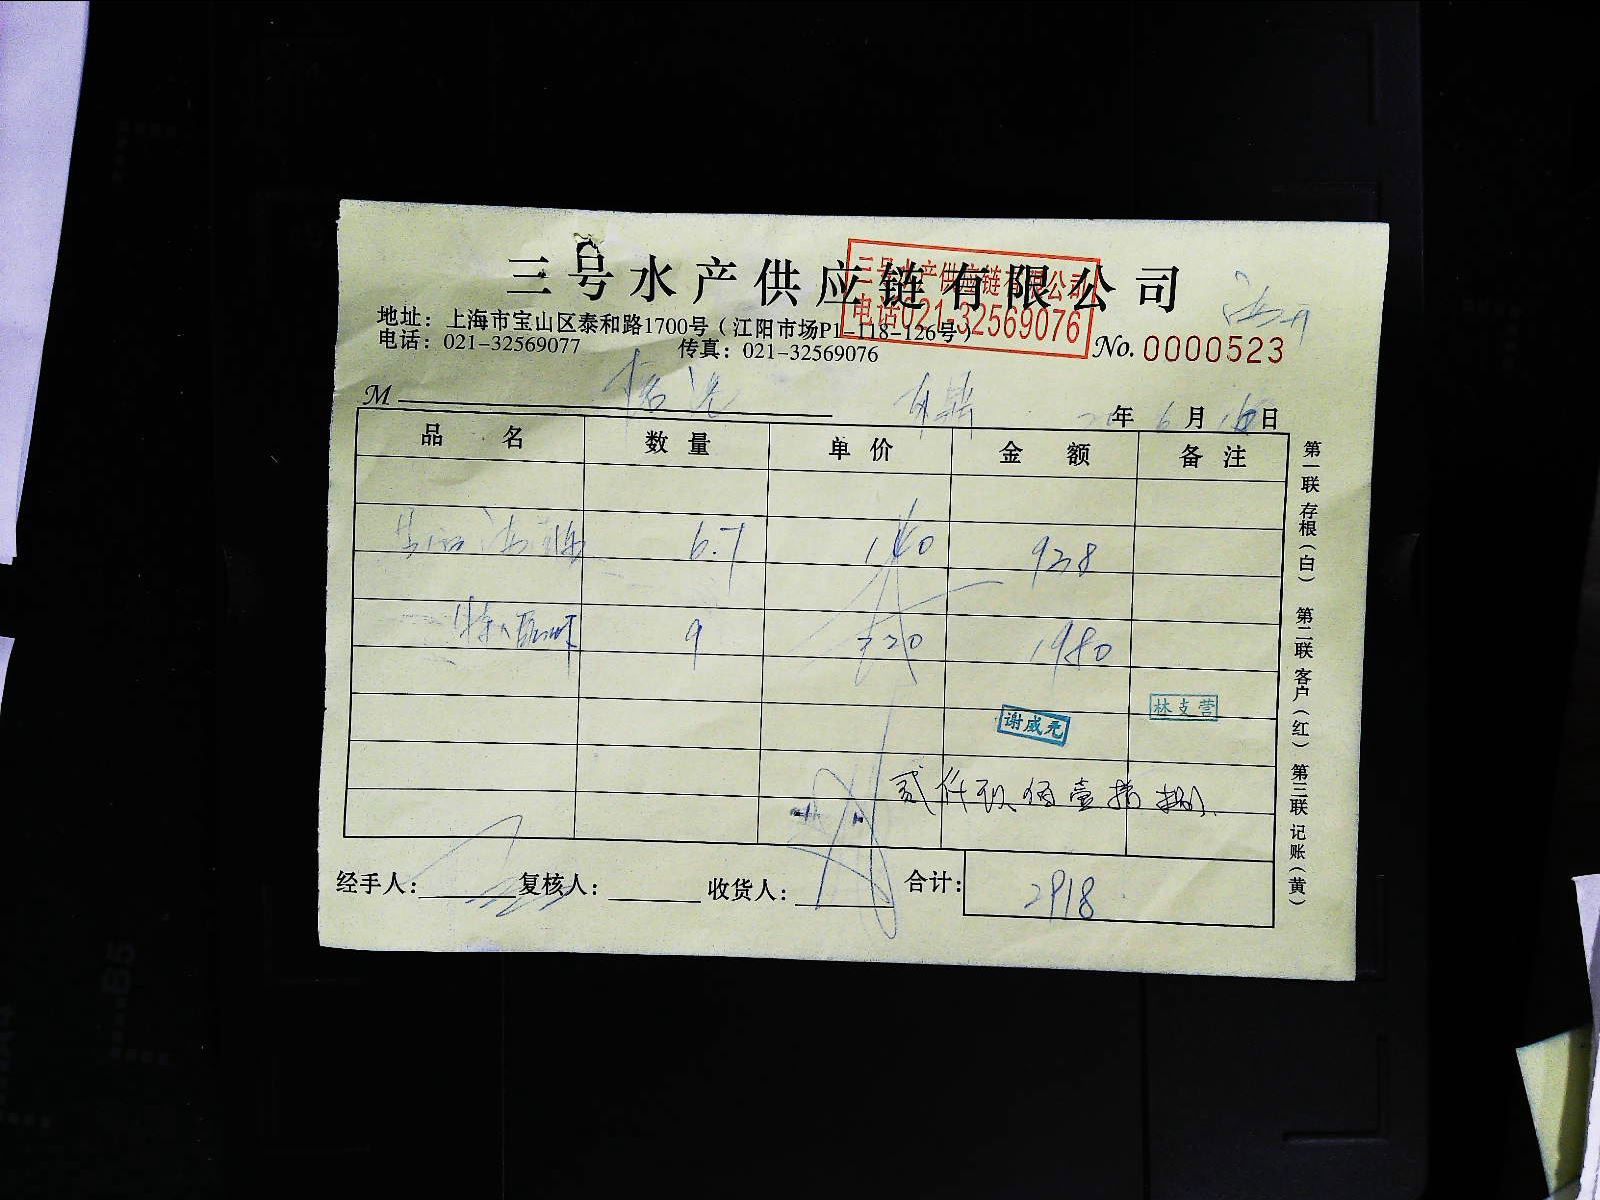 三号水产供应链有限公司
三号水产供应链有限公司
电话021-32569076
地址：上海市宝山区泰和路1700号（江阳市场P1-118-126号）
电话：021-32569077 传真：021-32569076
No. 0000523
M 年 6 月 日
品名 数量 单价 金额 备注
6.7 140 938
9 220 1980
谢威元 林支营
贰仟玖佰壹拾捌
经手人： 复核人： 收货人： 合计： 2918
第一联 存根（白） 第二联 客户（红） 第三联 记账（黄）